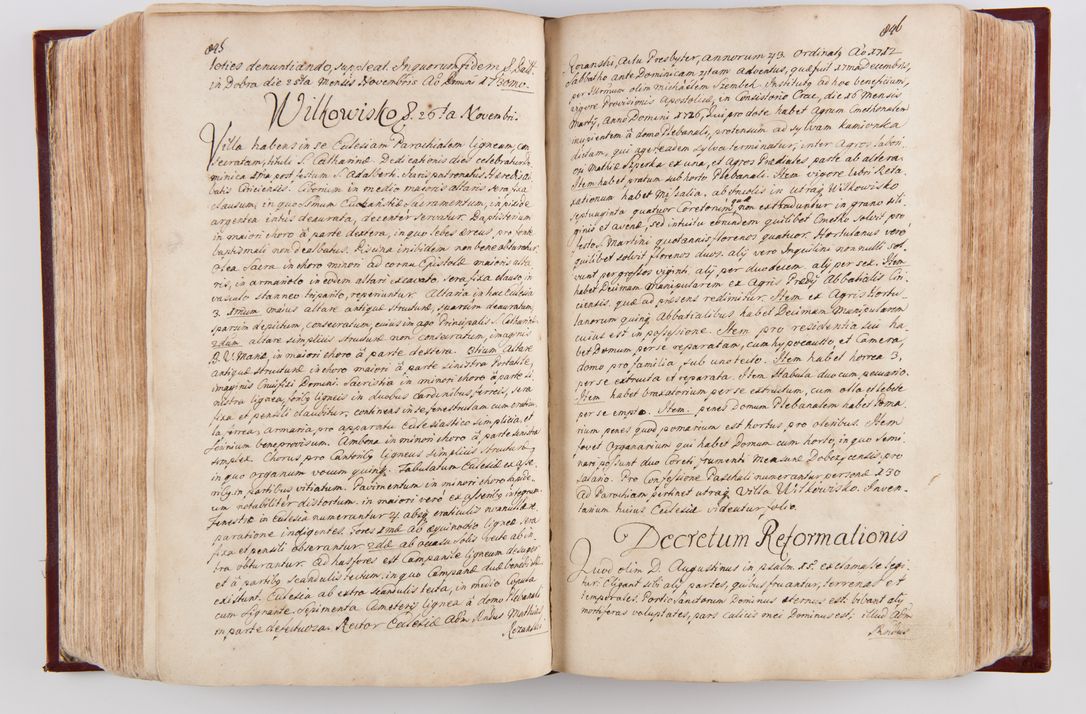 845
toties denuntiando, suppleat. In quorum fidem S. Datt.
in Dobra die 25ta Mensis Novembris AD Domini 1730mo.
Wilkowisko S. 26ta Novembris.
Villa habens in se Ecclesiam Parochialem ligneam, con
secratam, tituli S. Catharinæ. Dedicationis dies celebratur Do
minica 2da post festum S. Adalberti. Juris patronatus
batis Ciricensis. Ciborium in medio maioris altaris sera fixa
clausum, in quo SSmum Eucharistiæ Sacramentum, in pixide
argentea intus deaurata, decenter servatur. Baptisterium
in maiori choro à parte dextera, in quo lebes æreus, pro fonte
baptismali non dealbatus. Piscina inibidem non bene obturatur
Olea Sacra in choro minori ad cornu Epistolæ maioris alta
ris, in armariolo in eidem altari excavato, sera fixa clauso, in
vasculo stanneo tripartito, reperiuntur. Altaria in hac Ecclesia
3. 1mum maius altare antiquæ structuræ, sparsim deauratum,
sparsim depictum, consecratum, cuius imago Principalis S. Catharinæ
2dum. altare simplicis structuræ non consecratum, imaginis
B. V. Mariæ, in maiori choro à parte dextera. 3tium Altare
antiquæ structuræ in choro maiori à parte sinistra Portatile,
imaginis Crucifixi Domini. Sacristia in minori choro à parte si
nistra lignea, foribus ligneis in duobus cardinibus, ferreis, sera
fixa et pensili clauditur, continens in se, fenestrulam cum craticu
la, ferrea, armaria pro apparatu Ecclesiastico simplicia, et
fornium bene provisum. Ambona in minori choro à parte sinistra
simplex. Chorus pro Cantoribus ligneus simplicis structuræ,
in quo organum vocum quinque. Tabulatum Ecclesiæ ex asse
ribus, in partibus vitiatum. Pavimentum in minori choro lapide
um notabiliter distortum, in maiori vero ex asseribus integrum.
Fenestræ in Ecclesia numerantur 4. absque craticulis nonnullæ re
paratione indigentes. Fores 1mæ ab æquinoctio ligneæ sera
fixa et pensili obserantur 2dæ ab occasu Solis vecte ab in
tra obturantur. Ad has fores est Campanile ligneum desuper
et à partibus scandulis tectum, in quo Campanæ duæ benedictæ
existunt. Ecclesia ab extra scandulis tecta, in medio Copula
cum Signante. Sepimenta Cæmeterij lignea à domo Plebanali
in parte defectuosa. Rector Ecclesiæ Adm. Rndus Mathias
Kozanski
846
Kozanski, Actu Presbyter, annorum 43. Ordinatus Ao 1712
Sabbatho ante Dominicam 4tam Adventus, quæ fuit 17ma Decembris,
per Illrmum olim Michaëlem Szembek. Institutus ad hoc beneficium,
vigore Provisionis Apostolicæ, in Consistorio Crac. die 16 Mensis
Martij, Anno Domini 1726, Qui pro dote habet Agrum Cmethonalem
incipientem à domo Plebanali, protensum ad sylvam kamionska
dictam, qui ager eadem sylva terminatur, inter Agros labori
osi Mathiæ Superska ex una, et Agros Prædiales parte ab altera.
Item habet pratum sub horto Plebanali. Item vigore libri Reta
xationum habet Missalia, ab incolis in utraque Wilkowisko
septuaginta quatuor Coretorum, quæ non extraduntur in grano sili
ginis et avenæ, sed intuitu eorundem quilibet Cmetho solvit pro
festo S. Martini quotannis florenos quatuor. Hortulanus vero
quilibet solvit florenos duos. alij vero Inquilini nonnulli sol
vunt per grossos viginti, alij per duodecim, alij per sex. Item
habet Decimam Manipularem ex Agris Prædij Abbatialis Ci
ricensis, quæ ad præsens redimitur. Item ex Agris Hortu
lanorum quinque Abbatialibus habet Decimam Manipularem
cuius est in possessione. Item pro residentia seu ha
bet Domum per se reparatam, cum hypocausto, et Camera,
domo pro familia, sub uno tecto. Item habet horrea 3,
per se extructa et reparata. Item Stabula duo cum pecuario.
Item habet braxatorium per se extructum, cum olla et lebete
per se empto. Item penes Domum Plebanalem habet Poma
rium penes quod pomarium est hortus pro oleribus. Item
fovet Organarium qui habet Domum cum horto, in quo semi
nari possunt duo Coreti, frumenti Mensuræ Dobczycensis, pro
salario. Pro Confessione Paschali numerantur personæ 850
Ad Parochiam pertinet utraque Villa Wilkowisko. Inven
tarium huius Ecclesiæ videatur folio.
Decretum Reformationis
Quod olim D. Augustinus in psalm. 15. exclamasse legi
tur. Eligant sibi alij partes, quibus fruantur, terrenas et
temporales. Portio Sanctorum Dominus æternus est. bibant alij
mortiferas voluptates, pars calicis mei Dominus est; illud Adm
Rndus